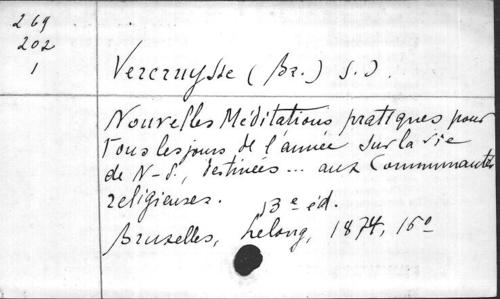 269
202
1
Vercruysse (Br.) S.J.
Nouvelles Méditations pratiques pour
tous les jours de l'année sur la vie
de N-S., destinées... aux Communautés
religieuses.
13e éd.
Bruxelles, Lelong, 1874, 16o